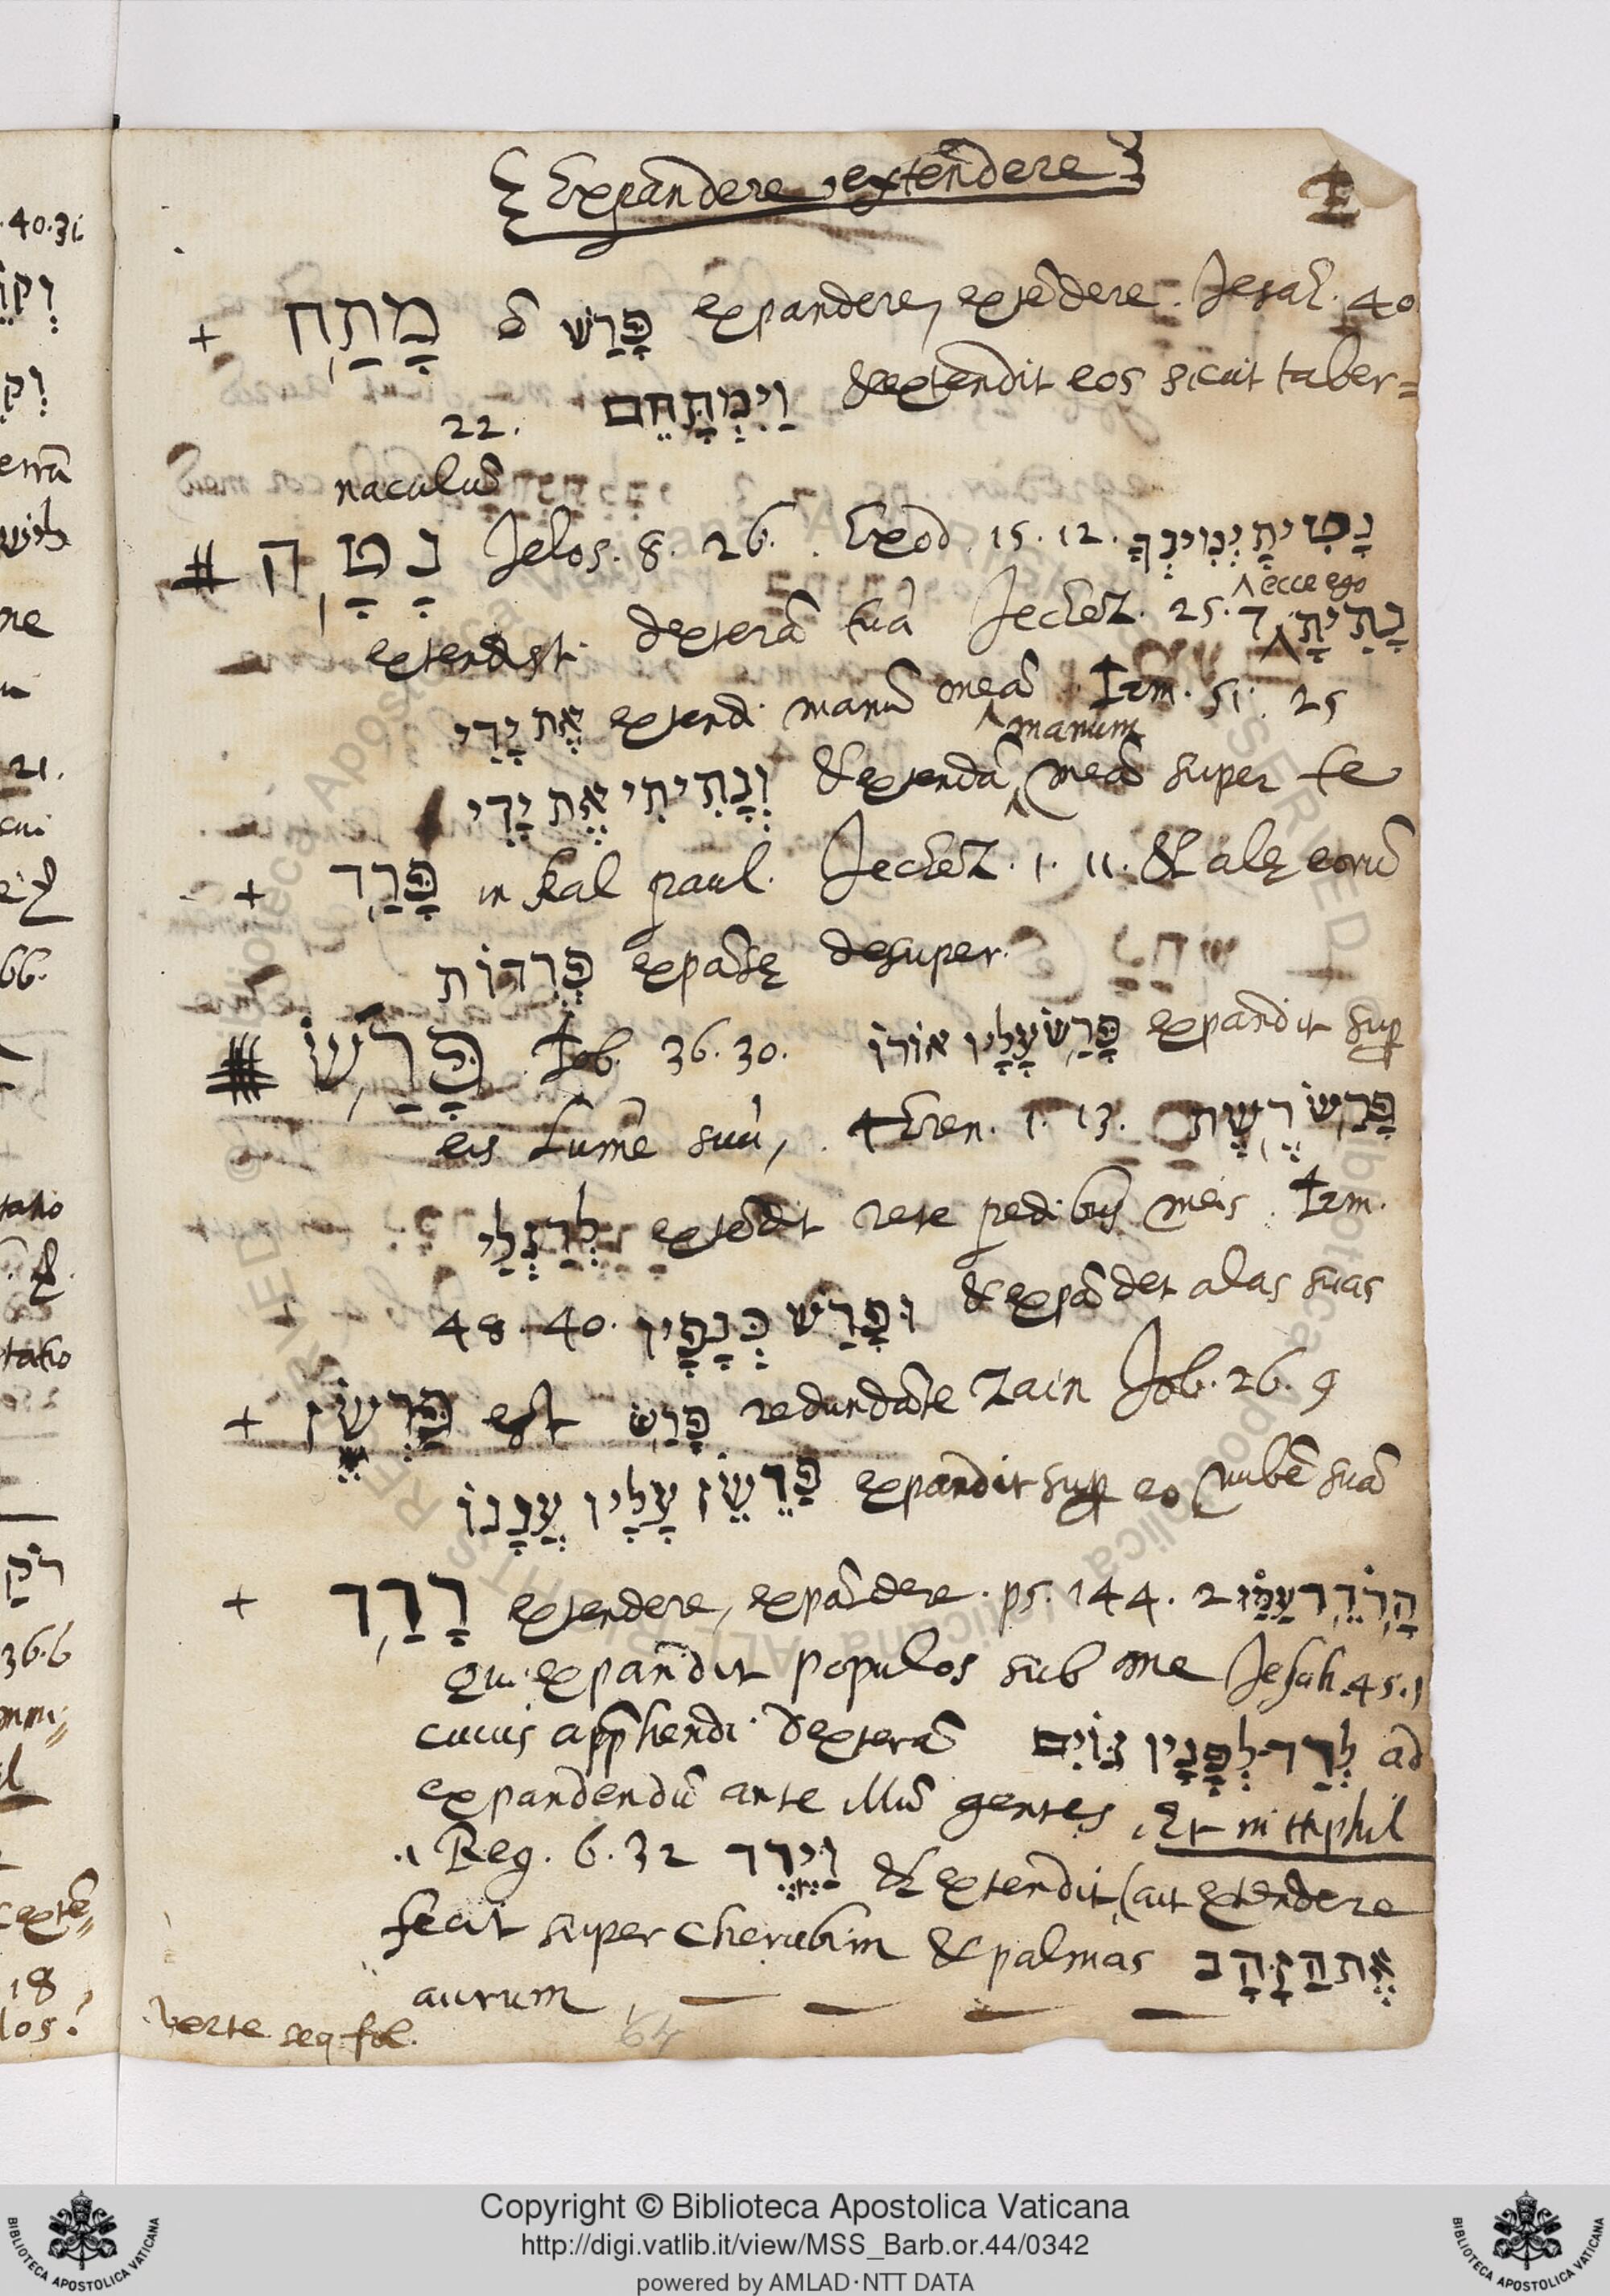 Expandere, extendere
+ מָתַח פָּרַשׂ expandere, extēdere. Jesaī. 40.
22. וַיִּמְתָּחֵם & extendit eos sicut taber=
naculū
נָטָה Jelos. 8. 26. Exod. 15. 12. נָטִיתָ יְמִינְךָ
ecce ego
extendisti dexterā tuā Jechez. 25. 7 נָתִיתָ
אֶת יָדִי extendi manū meā Irm. 51. 25
manum
וְנָתִיתִי אֶת יָדִי & extendā meā super te
+ פָּרַד in kal paul. Jechez. 1. 11. & alę eorū
פְּרֻדוֹת expāsę desuper.
פָּרַשׂ Iob. 36. 30. פָּרַשׂ עָלָיו אוֹרוֹ expandit sup
eis lumē suū, Eren. 1. 13. פָּרַשׂ רֶשֶׁת
לְרַגְלַי extēdit rete pedibus meis. Irm.
48. 40. וּפָרַשׂ כְּנָפָיו & expādet alas suas
+ פַּרְשֵׁז est פָּרַשׂ redundāte Zain Job. 26. 9
פַּרְשֵׁז עָלָיו עֲנָנוֹ expandit sup eo nubē suā
+ רָדַד extendere, expādere. ps. 144. 2 הָרוֹדֵד עַמִּי
qui expandit populos sub me Jesah. 45. 1
cuius apphendi dexterā לְרַד לְפָנָיו גּוֹיִם ad
expandendū ante illū gentes, Et in Hiphil
1 Reg. 6. 32 וַיָּרֶד & extendit, (aut extendere
fecit super cherubim & palmas אֶת הַזָּהָב
aurum
verte seq. fol.
64
Copyright © Biblioteca Apostolica Vaticana
http://digi.vatlib.it/view/MSS_Barb.or.44/0342
powered by AMLAD·NTT DATA
BIBLIOTECA APOSTOLICA VATICANA
BIBLIOTECA APOSTOLICA VATICANA